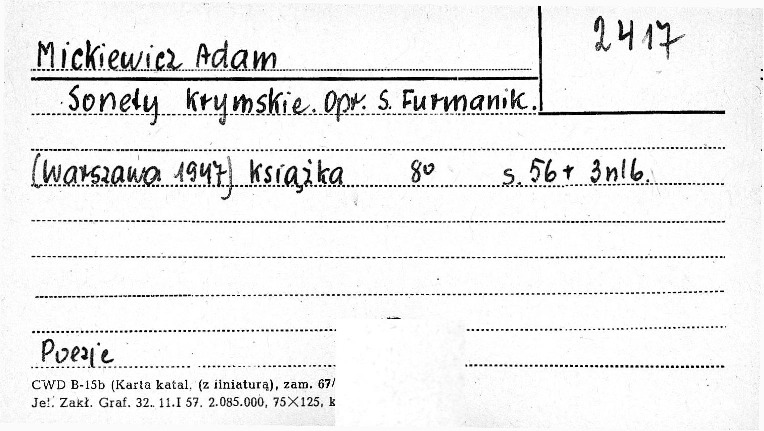 2417
Mickiewicz Adam
Sonety Krymskie. Opr. S. Furmanik.
[Warszawa 1947] Książka 8⁰ s. 56 + 3 nlb.
Poezje
CWD B-15b (Karta katal. (z iiniaturą), zam. 67/
Je!. Zakł. Graf. 32. 11.I 57. 2.085.000, 75×125, k